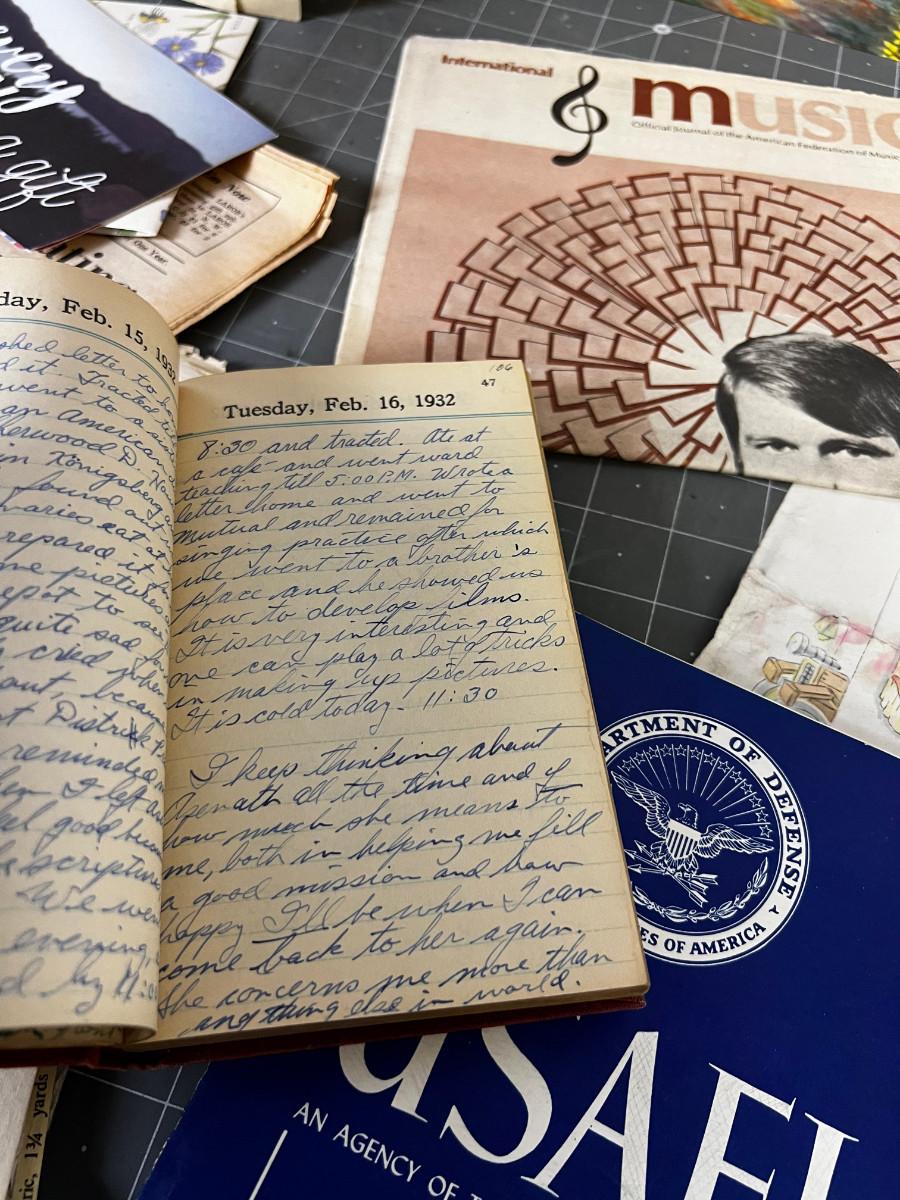 very
a gift
International
music
Official Journal of the American Federation of Music
LABOR'S
LABOR
One Year
day, Feb. 15, 193
shed letter to
d it. Tracted
went to a
an American
herwood D.
in Königsberg
found out
eat at
repared it
me pictures
epot to see
quite sad for
cried when
out, because
t District
reminded
hen I left
el good
scripture
We went
evening,
d by 11:0
106
47
Tuesday, Feb. 16, 1932
8:30 and tracted. Ate at
a café and went ward
teaching till 5:00 P.M. Wrote a
letter home and went to
Mutual and remained for
singing practice after which
we went to a brother's
place and he showed us
how to develop films.
It is very interesting and
one can play a lot of tricks
in making up pictures.
It is cold today. 11:30
I keep thinking about
Asenath all the time and of
how much she means to
me, both in helping me fill
a good mission and how
happy I'll be when I can
come back to her again.
She concerns me more than
anything else in world.
ARTMENT OF DEFENSE
ES OF AMERICA
USAFI
AN AGENCY OF T
ric, 1¾ yards